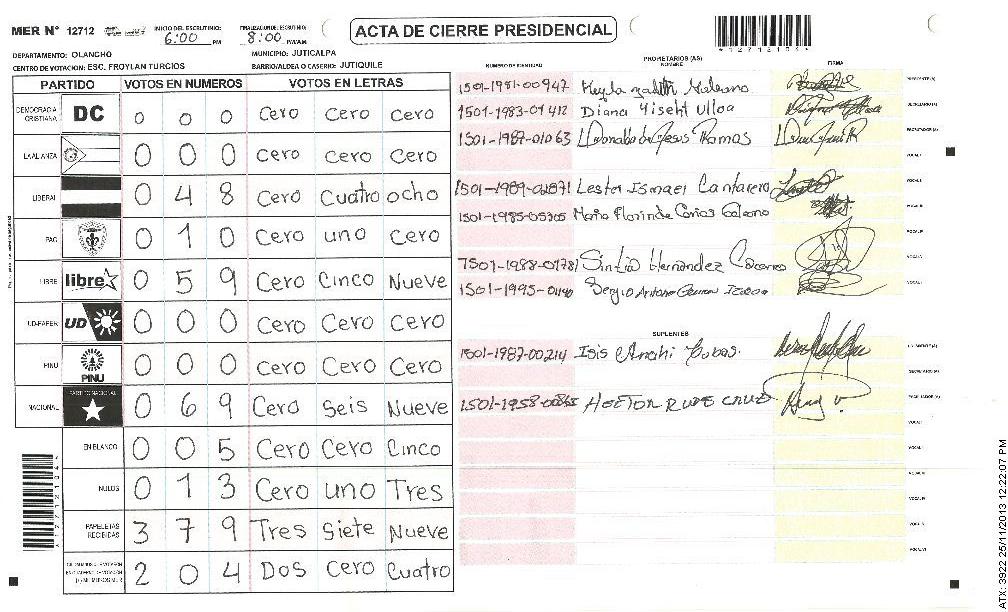 MER N° 12712
INICIO DEL ESCRUTINIO: 6:00 PM
FINALIZACION DEL ESCRUTINIO: 8:00 PM/AM
ACTA DE CIERRE PRESIDENCIAL
DEPARTAMENTO: OLANCHO
MUNICIPIO: JUTICALPA
CENTRO DE VOTACION: ESC. FROYLAN TURCIOS
BARRIO/ALDEA O CASERIO: JUTIQUILE
PARTIDO VOTOS EN NUMEROS VOTOS EN LETRAS
DEMOCRACIA CRISTIANA DC 0 0 0 Cero Cero Cero
LA ALIANZA 0 0 0 Cero Cero Cero
LIBERAL 0 4 8 Cero Cuatro ocho
PAC 0 1 0 Cero uno Cero
LIBRE libre 0 5 9 Cero Cinco Nueve
UD-FAPER UD 0 0 0 Cero Cero Cero
PINU PINU 0 0 0 Cero Cero Cero
NACIONAL PARTIDO NACIONAL 0 6 9 Cero Seis Nueve
EN BLANCO 0 0 5 Cero Cero Cinco
NULOS 0 1 3 Cero uno Tres
PAPELETAS RECIBIDAS 3 7 9 Tres Siete Nueve
2 0 4 Dos Cero Cuatro
NUMERO DE IDENTIDAD
PROPIETARIOS (AS)
NOMBRE
FIRMA
1501-1981-00947 Keyla
PRESIDENTE (A)
1501-1983-01412 Diana Yiseht Ulloa
SECRETARIO (A)
1501-1987-01063 de Jesus Ramos
ESCRUTADOR (A)
VOCAL I
1501-1989-01871 Lester Ismael Cantarero
VOCAL II
1501-1985- Maria Florinda
VOCAL III
VOCAL IV
1501-1988-01781 Sintia Hernandez
VOCAL V
1501-1995- Sergio Antonio
VOCAL VI
SUPLENTES
1501-1987-00214 Isis Anahi Cubas.
PRESIDENTE (A)
SECRETARIO (A)
1501-1958- HECTOR CRUZ
ESCRUTADOR (A)
VOCAL I
VOCAL II
VOCAL III
VOCAL IV
VOCAL V
VOCAL VI
ATX: 3922 25/11/2013 12:22:07 PM